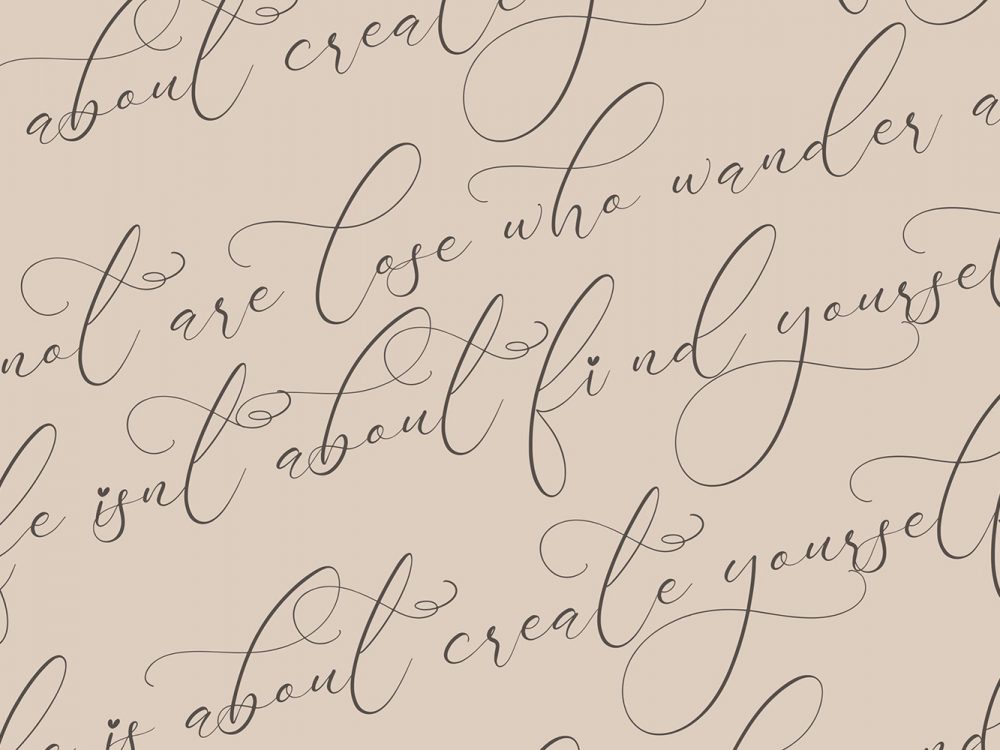 about creat
not are lose who wander a
e isnt about find yoursel
e is about create yourself